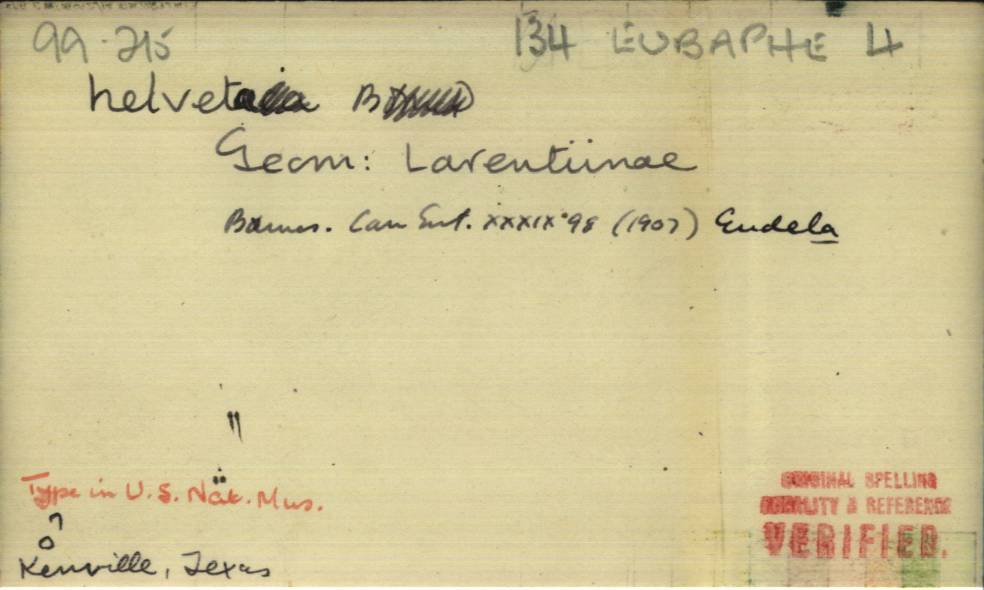 99-215
134 EUBAPHE 4
helvetaria
Geom: Larentiinae
Barnes. Can Ent. XXXIX 98 (1907) Eudela
"
Type in U.S. Nat. Mus.
♂
Kerrville, Texas
ORIGINAL SPELLING
LOCALITY & REFERENCE
VERIFIED.